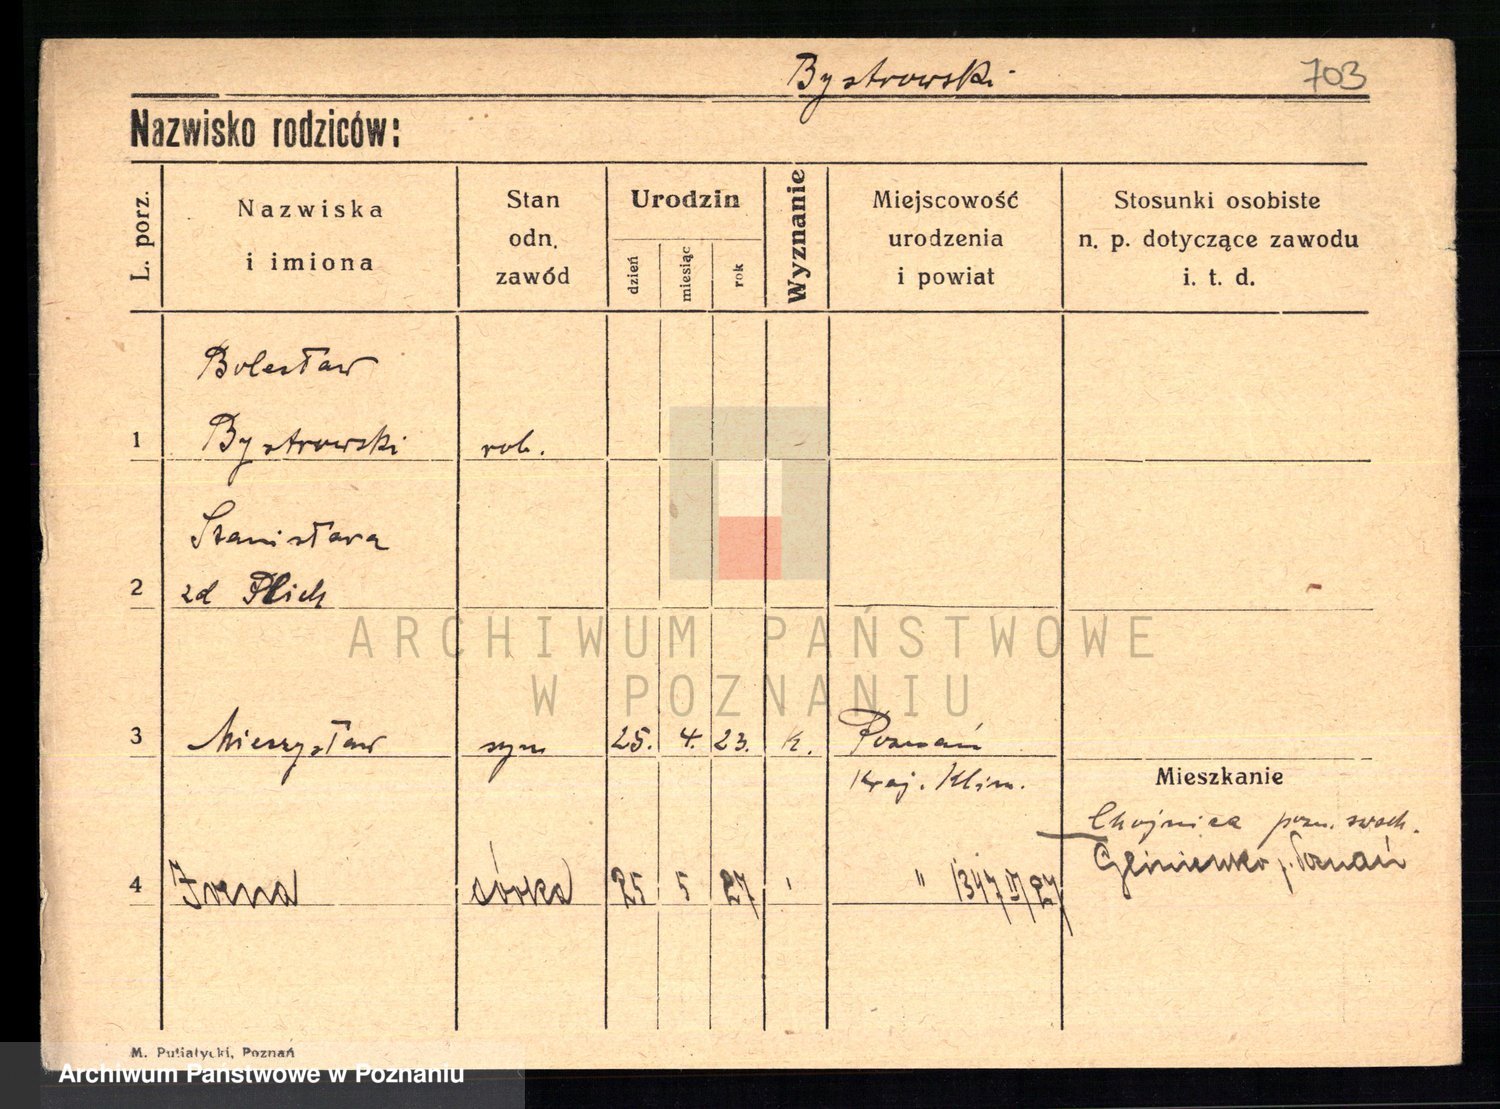 Bystrowski
703
Nazwisko rodziców:
L. porz.
Nazwiska
i imiona
Stan
odn.
zawód
Urodzin
dzień
miesiąc
rok
Wyznanie
Miejscowość
urodzenia
i powiat
Stosunki osobiste
n. p. dotyczące zawodu
i. t. d.
Bolesław
1 Bystrowski rob.
Stanisława
2 zd Plich
ARCHIWUM PAŃSTWOWE
W POZNANIU
3 Mieczysław syn 25. 4. 23. k. Poznań
Kraj. Klin.
Mieszkanie
Chojnica pozn. wsch.
Glinienko p. Poznań
4 Irena córka 25 5 27 " " 1347/II/27
M. Putiatycki, Poznań
Archiwum Państwowe w Poznaniu